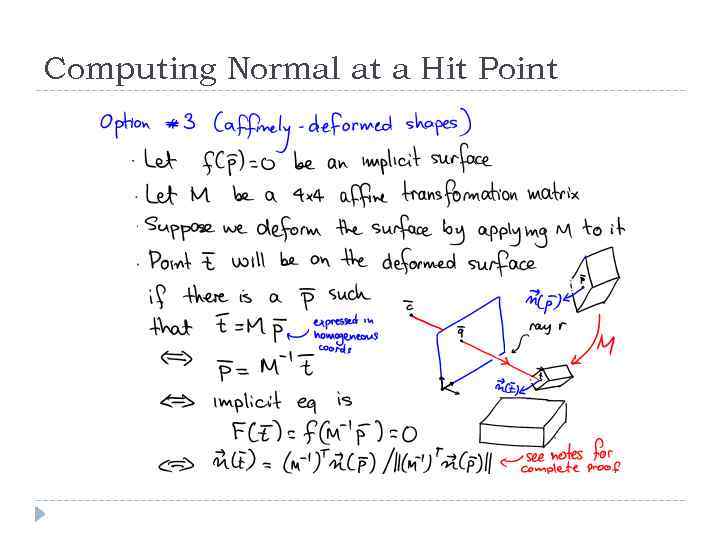 Computing Normal at a Hit Point
Option #3 (affinely-deformed shapes)
· Let f(p̄)=0 be an implicit surface
· Let M be a 4x4 affine transformation matrix
· Suppose we deform the surface by applying M to it
· Point t̄ will be on the deformed surface
if there is a p̄ such
that t̄ = M p̄
expressed in
homogeneous
coords
⇔ p̄ = M⁻¹ t̄
⇔ implicit eq is
F(t̄) = f(M⁻¹p̄) = 0
⇔ n⃗(t̄) = (M⁻¹)ᵀ n⃗(p̄) / ||(M⁻¹)ᵀ n⃗(p̄)||
see notes for
complete proof
c̄
q̄
ray r
n⃗(p̄)
p̄
M
n⃗(t̄)
t̄